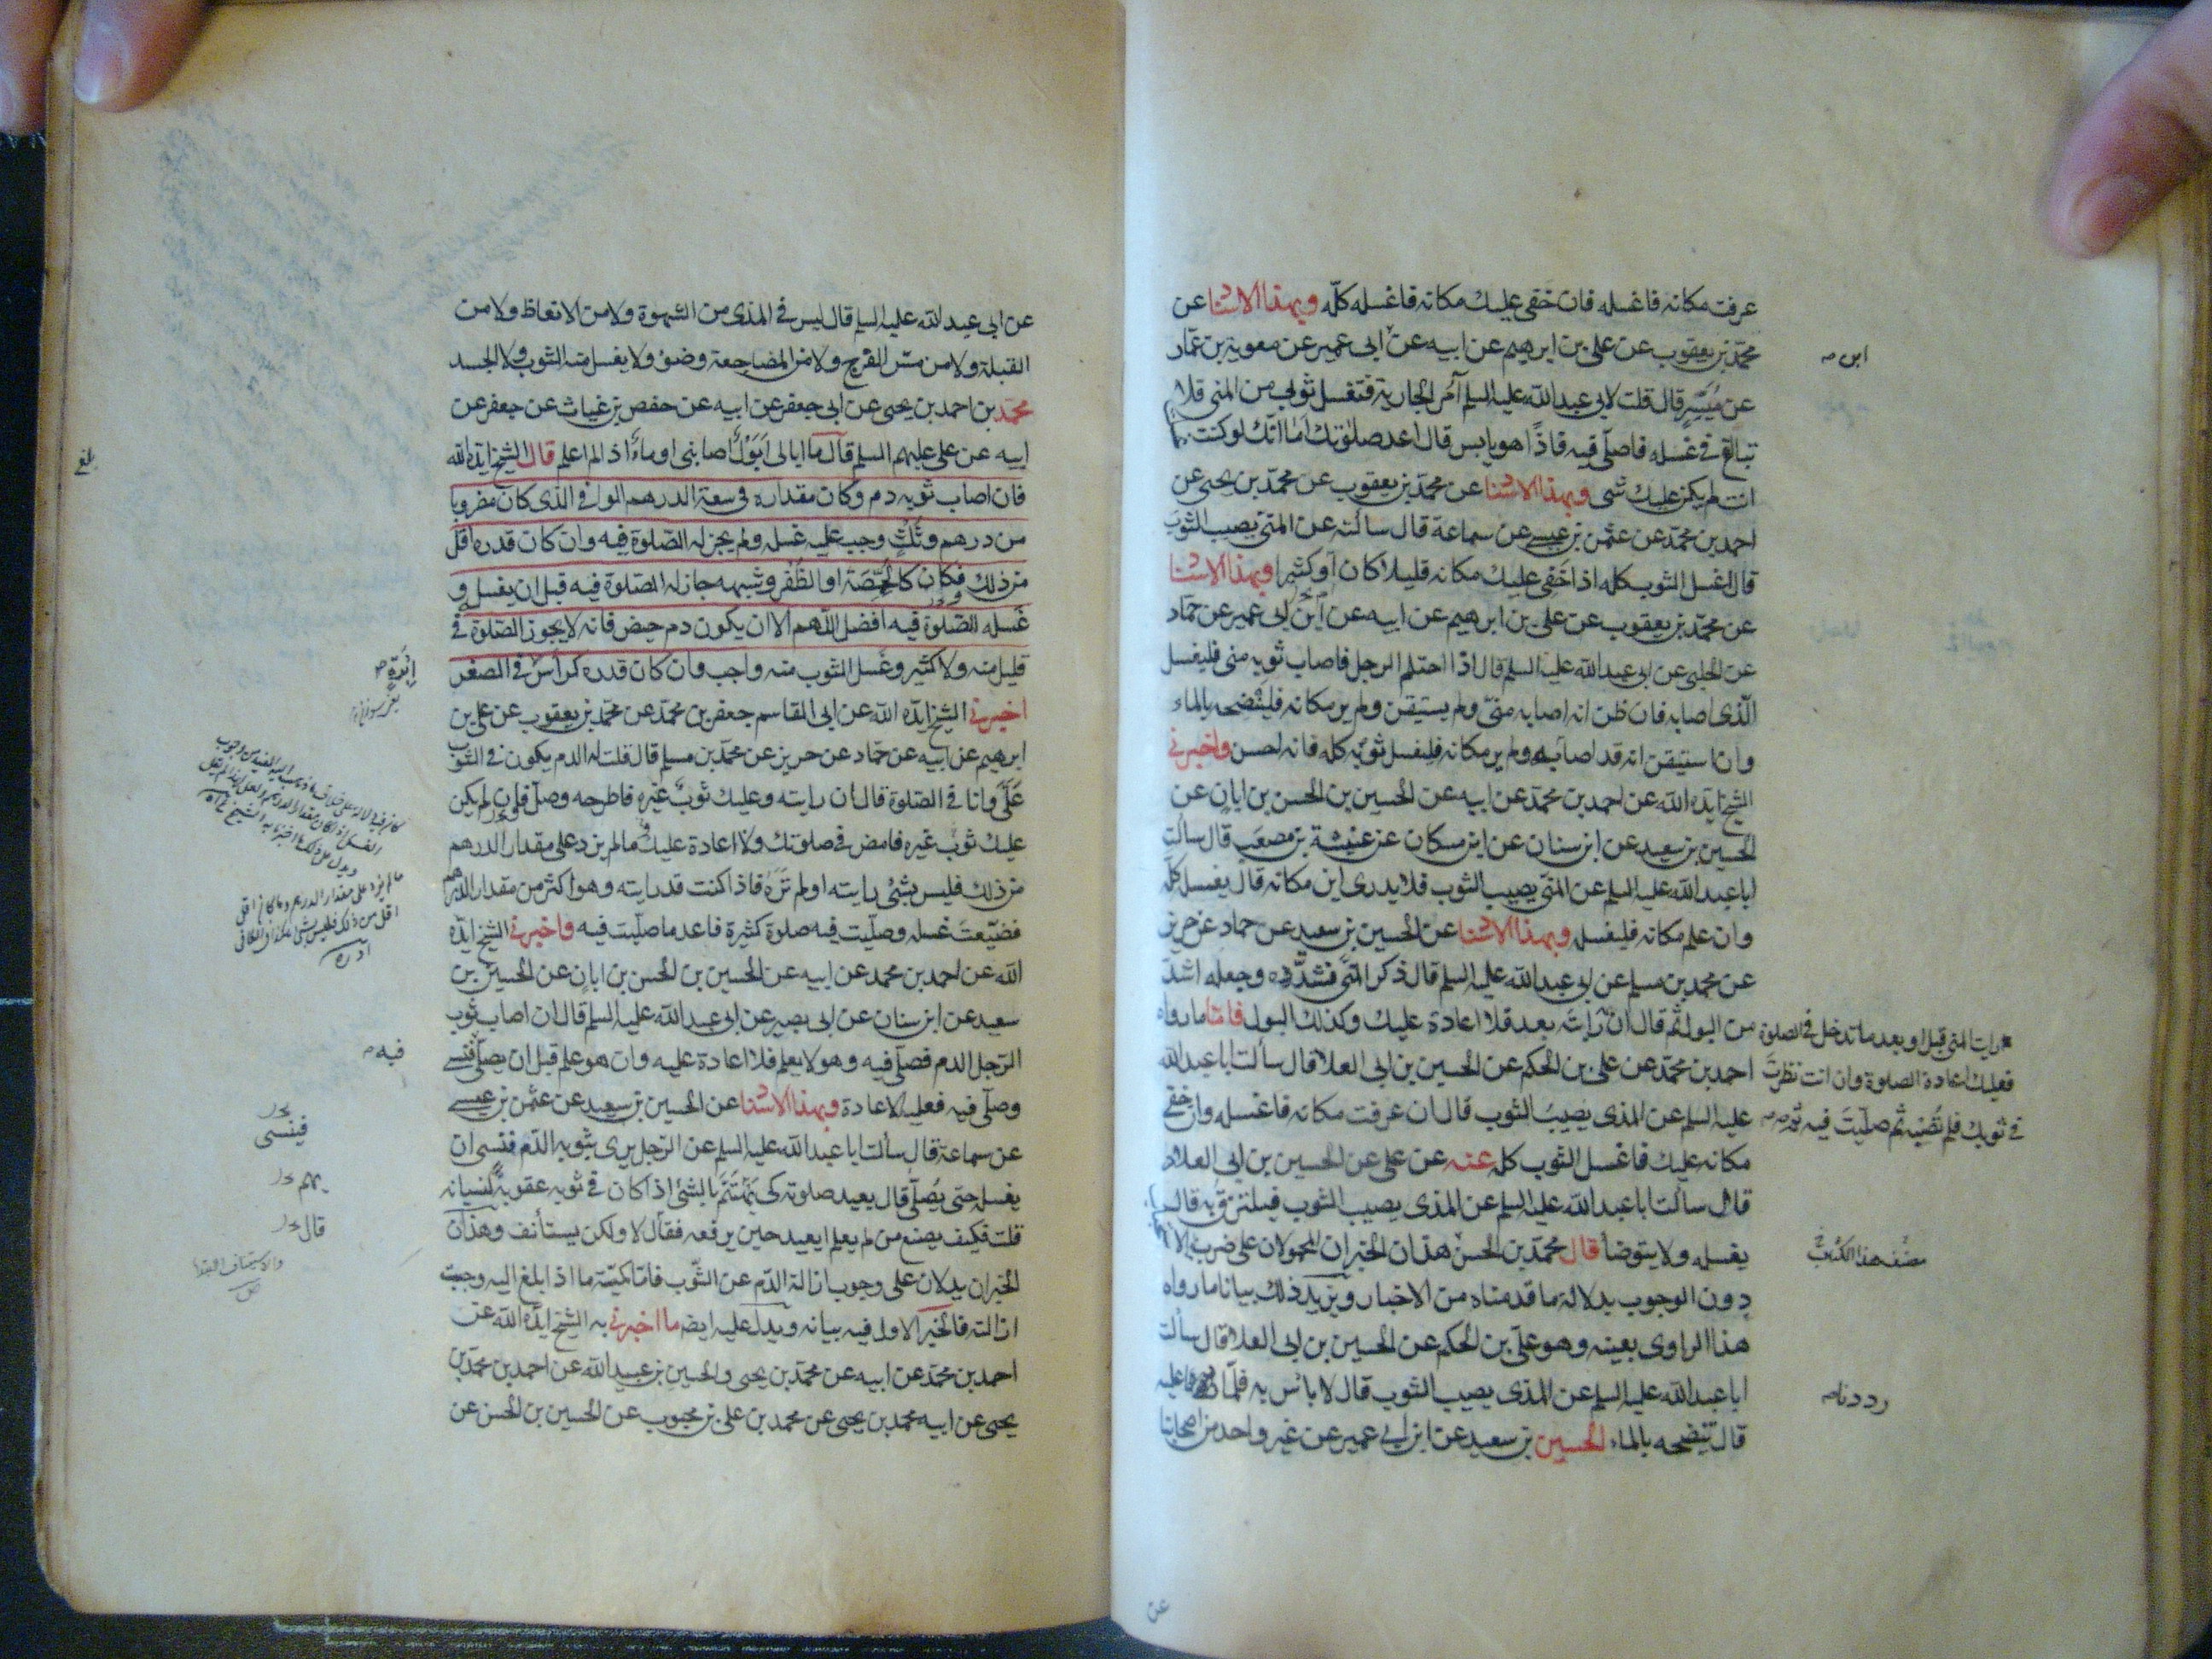 عرفت مكانه فاغسله فان خفى عليك مكانه فاغسله كلّه وبهذا الاسنا عن
محمّد بن يعقوب عن على بن ابرهيم عن ابيه عن ابى عمير عن معوية بن عمّار
ابن صه
عن مُيَسِّرٍ قال قلت لابى عبد الله عليه السلم آمُر الجارية فتغسل ثوبى من المنى فلا
تبالغ فى غسله فاصلّى فيه فاذًا هو يابس قال اعد صلوتك اما انّك لو كنت
انت لم يكن عليك شى وبهذا الاسنا عن محمّد بن يعقوب عن محمّد بن يحيى عن
احمد بن محمّد عن عثمن بن عيسى عن سماعة قال سألته عن المنى يصيب الثوبَ
قال اغسل الثوب كله اذا خَفى عليك مكانه قليلا كان أو كثيرا وبهذا الاسنا
عن محمّد بن يعقوب عن على بن ابرهيم عن ابيه عن ابن ابى عمير عن حمّاد
عن الحلبى عن ابى عبد الله عليه السلم قال اذا احتلم الرجل فاصاب ثوبه منى فليغسل
الّذى اصابه فان ظن انه اصابه منىّ ولم يستيقن ولم ير مكانه فلينضحه بالماء
وان استيقن انه قد اصابه ولم ير مكانه فليغسل ثوبه كله فانه احسن واخبرنى
الشيخ ايّده الله عن احمد بن محمّد عن ابيه عن الحسين بن الحسن بن ابان عن
الحسين بن سعيد عن ابن سنان عن ابن مسكان عن عنبسة بن مصعب قال سألت
ابا عبد الله عليه السلم عن المنىّ يصيب الثوب فلا يدرى اين مكانه قال يغسل كلّه
وان علم مكانه فليغسله وبهذا الاسنا عن الحسين بن سعيد عن حماد عن حريز
عن محمد بن مسلم عن ابى عبد الله عليه السلم قال ذكر المنىَّ فشدّده وجعله اشدّ
من البول ثم قال ان رَأيتَ بعد فلا اعادة عليك وكذلك البول فامّا ما رواه
رايت المنى قبل او بعد ما تدخل فى الصلوة
فعليك اعادة الصلوة وان انت نظرتَ
فى ثوبك فلم تُصِبْه ثم صلّيتَ فيه ثم صه
احمد بن محمّد عن على بن الحكم عن الحسين بن ابى العلا قال سألت ابا عبد الله
عليه السلم عن المذى يصيبُ الثوب قال ان عرفت مكانه فاغسله وان خفى
مكانه عليك فاغسل الثوب كله عنه عن على عن الحسين بن ابى العلا
قال سألت ابا عبد الله عليه السلم عن المذى يصيب الثوب فيلتزق به قال
يغسله ولا يتوضأ قال محمّد بن الحسن هذان الخبران محمولان على ضرب
مصنف هذا الكتاب
دون الوجوب بدلالة ما قدمناه من الاخبار ويزيد ذلك بيانا ما رواه
هذا الراوى بعينه وهو علىّ بن الحكم عن الحسين بن ابى العلا قال سألت
ابا عبد الله عليه السلم عن المذى يصيب الثوب قال لا باس به فلمّا عليه
رددنا صه
قال تنضحه بالماء الحسين بن سعيد عن ابن ابى عمير عن غير واحد من اصحابنا
عن
عن ابى عبد الله عليه السلم قال ليس فى المذى من الشهوة ولا من الانعاظ ولا من
القبلة ولا من مسّ الفرج ولا من المضاجعة وضوُ ولا يغسل منه الثوب ولا الجسد
محمّد بن احمد بن يحيى عن ابى جعفر عن ابيه عن حفص بن غياث عن جعفر عن
ابيه عن على عليهم السلم قال ما ابالى أبَوْلٌ اصابنى او ماءٌ اذ الم اعلم قال الشيخ ايّده الله
بلغ
فان اصاب ثوبه دم وكان مقداره فى سعة الدرهم الوافى الذى كان مضروبا
من درهم وثُلُثٍ وجب عليه غسله ولم يجز له الصّلوة فيه وان كان قدره اقلّ
من ذلك فكان كالحِمّصَة او الظُفْر وشبهه جاز له الصّلوة فيه قبل ان يغسله و
غَسْله للصّلوة فيه افضل اللّهم الا ان يكون دم حيض فانه لا يجوز الصّلوة فى
قليل منه ولا كثير وغَسل الثوب منه واجب وان كان قدره كرأس فى الصغر
اِبْرَةٍ صه
اخبرنى الشيخ ايّده الله عن ابى القاسم جعفر بن محمّد عن محمّد بن يعقوب عن على بن
ابرهيم عن ابيه عن حمّاد عن حريز عن محمّد بن مسلم قال قلت له الدم يكون فى الثوب
عَلَىَّ وانا فى الصّلوة قال ان رايته وعليك ثوبٌ غيره فاطرحه وصلّ فان لم يكن
عليك ثوبٌ غيره فامض فى صلوتك ولا اعادة عليك ما لم يزد على مقدار الدرهم
من ذلك فليس بشئ رايته او لم تَرَهُ فاذا كنت قد رايته وهو اكثر من مقدار الدرهم
فضيّعتَ غسله وصلّيت فيه صلوة كثيرة فاعد ما صلّيت فيه واخبرنى الشيخ ايّده
الله عن احمد بن محمد عن ابيه عن الحسين بن الحسن بن ابانٍ عن الحسين بن
سعيد عن ابن سنان عن ابى بصير عن ابى عبد الله عليه السلم قال ان اصاب ثوب
الرّجل الدم فصلّى فيه وهو لا يعلم فلا اعادة عليه وان هو علم قبل ان يصلّى فنسى
فيه صه
وصلّى فيه فعليه الاعادة وبهذا الاسنا عن الحسين بن سعيد عن عثمن بن عيسى
فينسى
عن سماعة قال سألت ابا عبد الله عليه السلم عن الرّجل يرى بثوبه الدّم فنسى ان
يغسله حتى يُصلّى قال يعيد صلوته كى يَهْتَمَّ بالشئ اذا كان فى ثوبه عقوبةً لنسيانه
قلت فكيف يصنع من لم يعلم ايعيد حين يرفعه فقال لا ولكن يستأنف وهذان
قال
الخبران يدلان على وجوب ازالة الدّم عن الثّوب فامّا كميّة ما اذا بلغ اليه وجبت
ازالته فالخبر الاول فيه بيانه ويدلّ عليه ايضه ما اخبرنى به الشيخ ايّده الله عن
احمد بن محمّد عن ابيه عن محمّد بن يحيى والحسين بن عبيد الله عن احمد بن محمّد بن
يحيى عن ابيه محمد بن يحيى عن محمد بن على بن محبوب عن الحسين بن الحسن عن